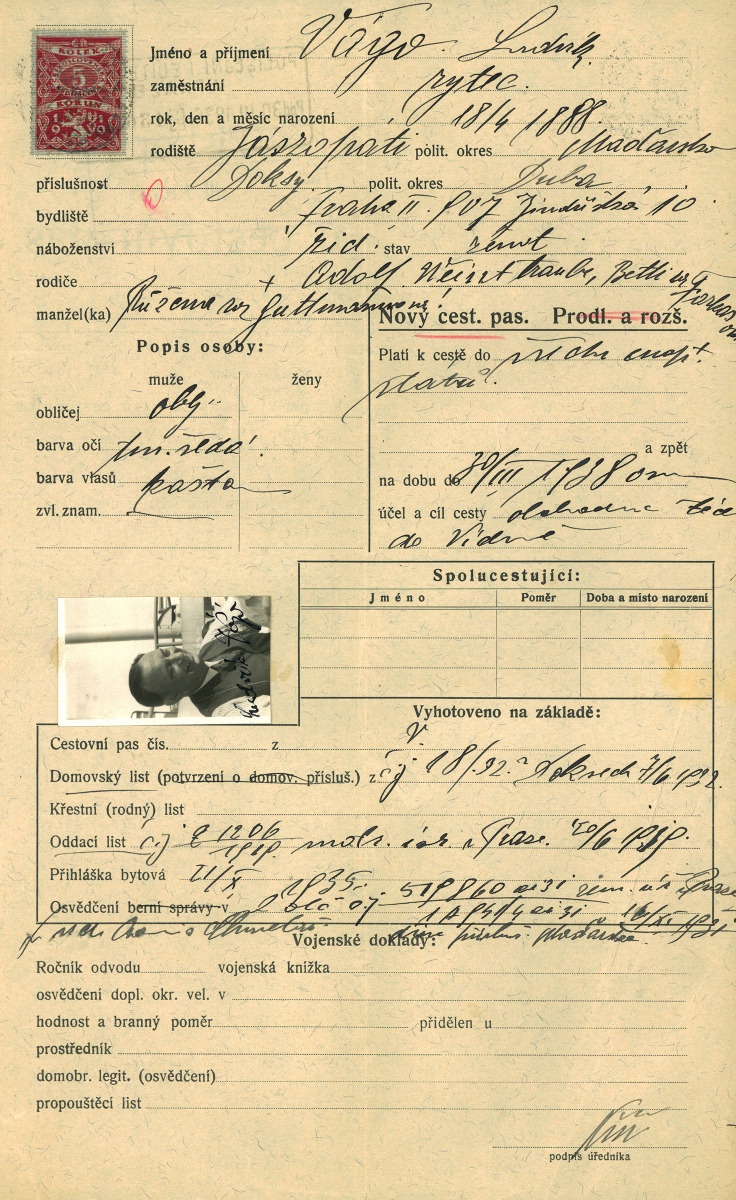 KOLEK
5
KORUN
1919
Jméno a příjmení Vágo Ludvík
zaměstnání rytec.
rok, den a měsíc narození 18/4 1888.
rodiště Jászapáti polit. okres Maďarsko
příslušnost Doksy. polit. okres Dubá
bydliště Praha II. 907 Jindřišská 10
náboženství žid. stav ženat
rodiče + Adolf Weinstraube, Betti roz. Farkas
manžel(ka) Růžena roz Guttmannová!
Nový cest. pas. Prodl. a rozš.
Popis osoby:
muže ženy
obličej obl.
barva očí tm. šedá.
barva vlasů kaštan
zvl. znam.
Platí k cestě do všech evrop.
států.
a zpět
na dobu do 30/III 1938
účel a cíl cesty obchodní
do Vídně
Spolucestující:
Jméno Poměr Doba a místo narození
Vyhotoveno na základě:
Cestovní pas čís. z
Domovský list (potvrzení o domov. přísluš.) z čj 18/32. Doksech 7/6 1932.
Křestní (rodný) list
Oddací list čj 1206/1919 Praze. 20/6 1919.
Přihláška bytová II/X 1935.
Osvědčení berní správy v čj. 519860 ai 31 zem. úř. Praze
1931
Vojenské doklady:
Ročník odvodu vojenská knížka
osvědčení dopl. okr. vel. v
hodnost a branný poměr přidělen u
prostředník
domobr. legit. (osvědčení)
propouštěcí list
podpis úředníka